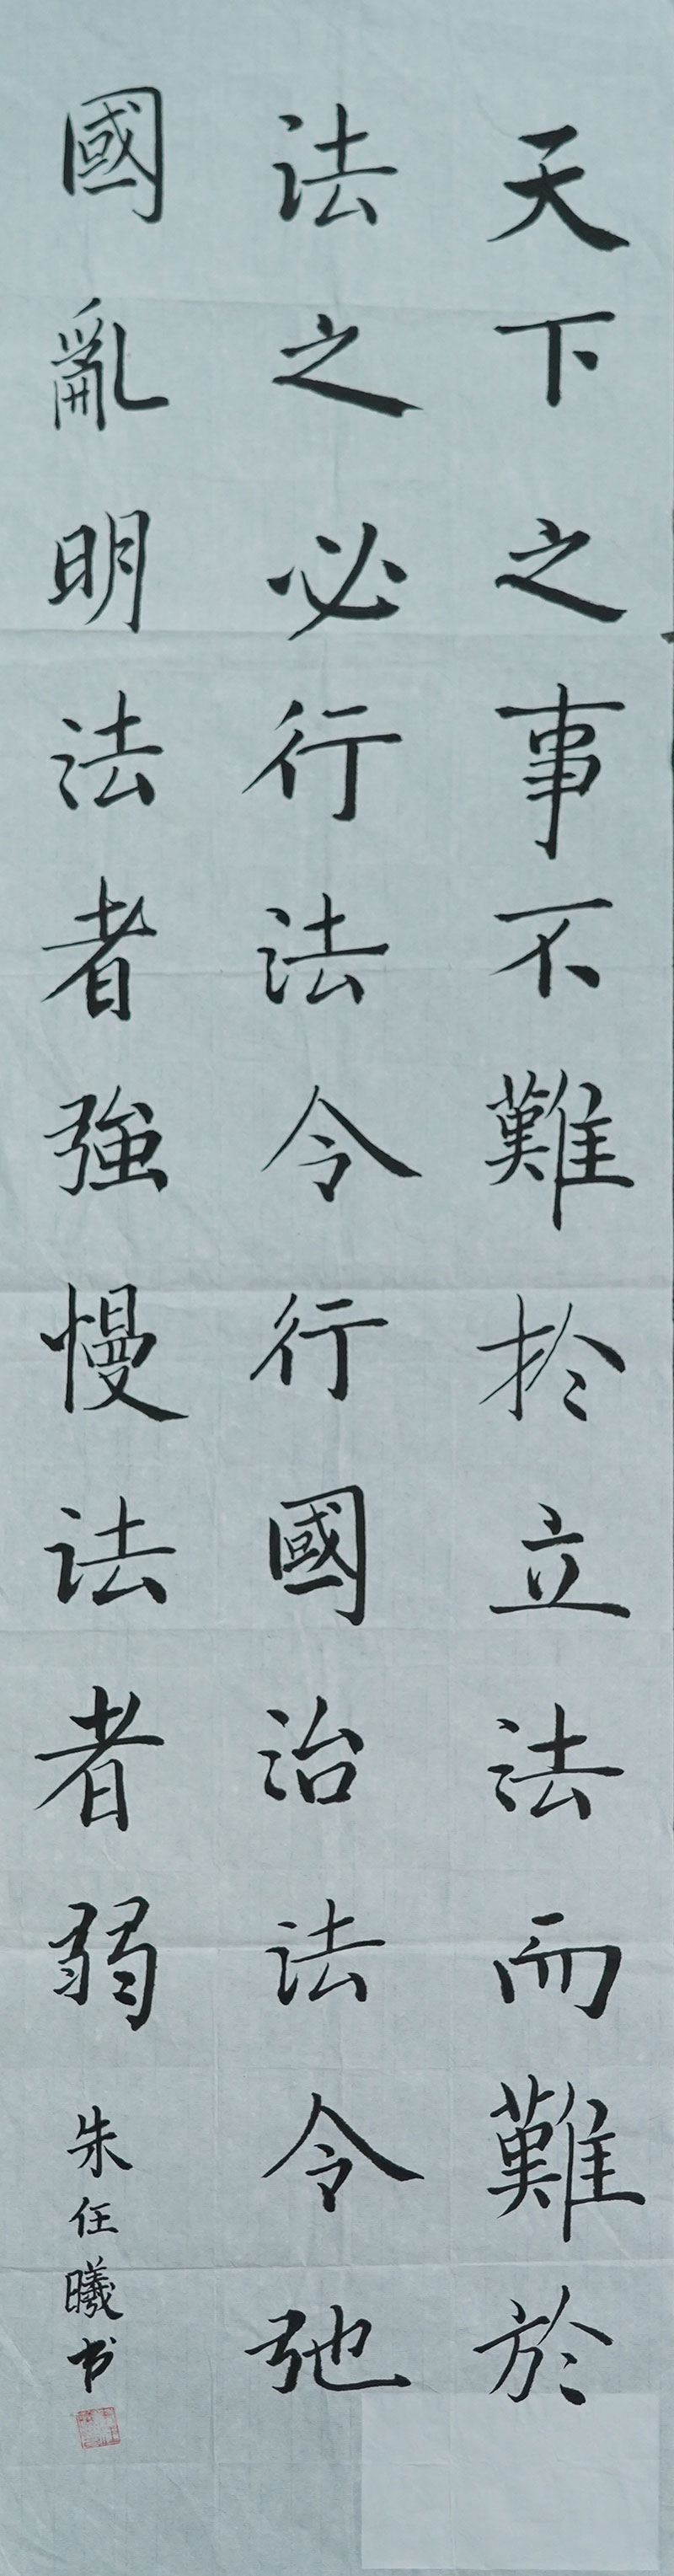 天下之事不難於立法而難於
法之必行法令行國治法令弛
國亂明法者強慢法者弱
朱任曦书